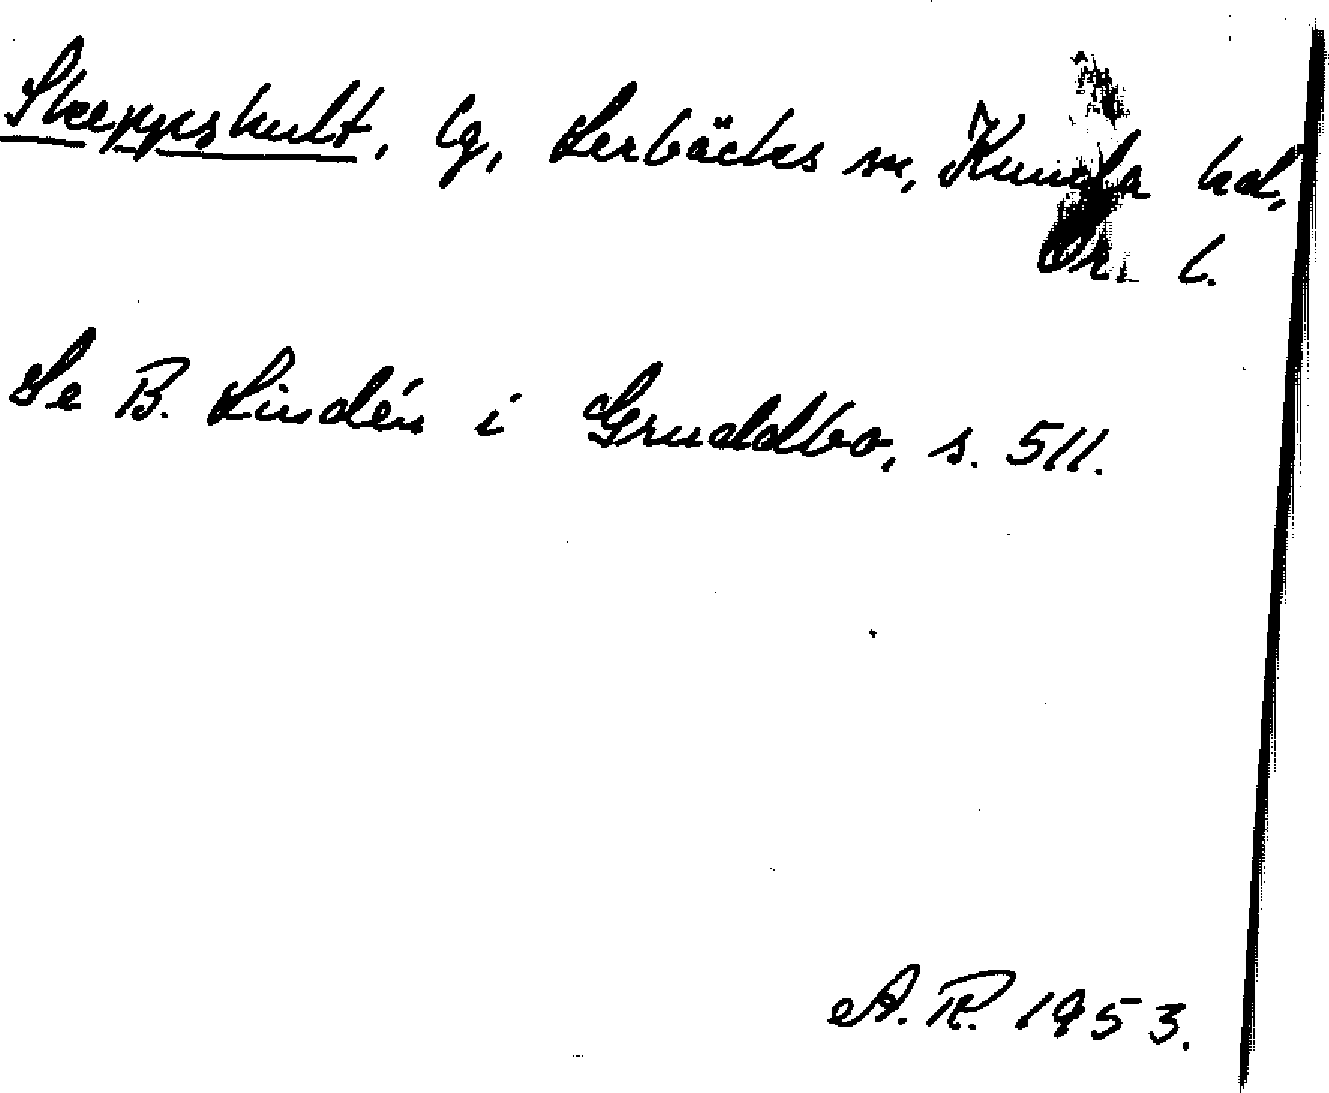 Skeppshult, lg, Lerbäcks sn, Kumla hd,
Ör. l.
Se B. Lindén i Gruddbo, s. 511.
A. R. 1953.